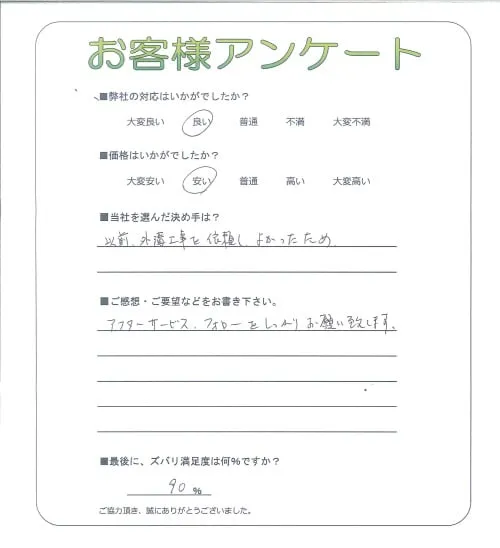 お客様アンケート
■弊社の対応はいかがでしたか？
大変良い 良い 普通 不満 大変不満
■価格はいかがでしたか？
大変安い 安い 普通 高い 大変高い
■当社を選んだ決め手は？
以前、外溝工事を依頼し、よかったため
■ご感想・ご要望などをお書き下さい。
アフターサービス、フォローをしっかりお願い致します。
■最後に、ズバリ満足度は何％ですか？
90 %
ご協力頂き、誠にありがとうございました。